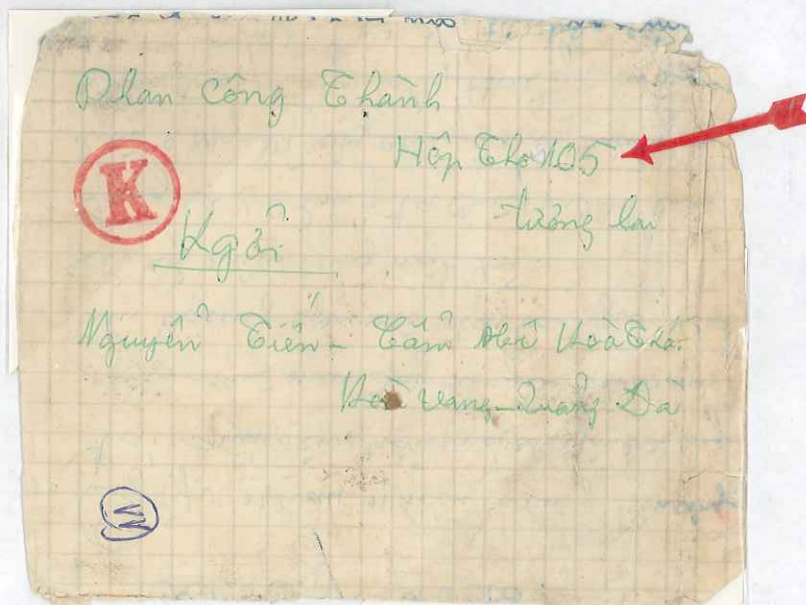 Phan Công Thành
Hộp Thơ 105
tương lai
K
Kgởi
Nguyễn Tiến - Cẩm Hoà
Hoà Vang - Quảng Đà